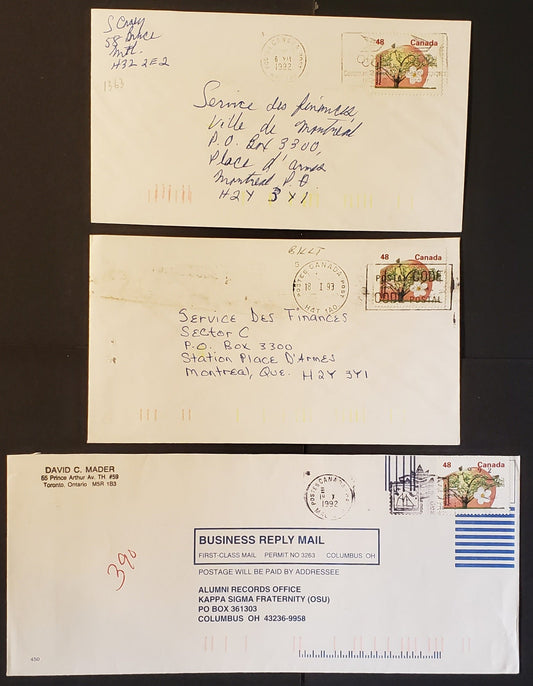 S Craig
58
Mtl.
H3Z 2E2
1363
1992
48 Canada
Service des finances
Ville de Montréal
P.O. Box 3300,
Place d'armes
Montreal P.Q
H2Y 3Y1
POSTES CANADA POST
18 I 93
48 Canada
POSTAL CODE
CODE POSTAL
SERVICE DES FINANCES
SECTOR C
P.O. BOX 3300
STATION PLACE D'ARMES
MONTREAL, QUE. H2Y 3Y1
DAVID C. MADER
55 Prince Arthur Av. TH #59
Toronto, Ontario M5R 1B3
POSTES CANADA
1992
48 Canada
390
BUSINESS REPLY MAIL
FIRST-CLASS MAIL PERMIT NO 3263 COLUMBUS OH
POSTAGE WILL BE PAID BY ADDRESSEE
ALUMNI RECORDS OFFICE
KAPPA SIGMA FRATERNITY (OSU)
PO BOX 361303
COLUMBUS OH 43236-9958
450